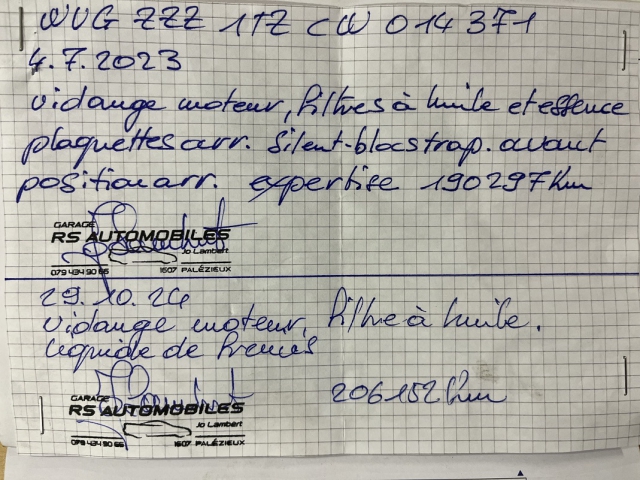 WVG ZZZ 1TZ CW 014371
4.7.2023
vidange moteur, filtres à huile et essence
plaquettes arr. Silent-blocs trap. avant
position arr. expertise 190297 Km
GARAGE
RS AUTOMOBILES
Jo Lambert
079 434 90 66 1607 PALÉZIEUX
29.10.24
vidange moteur, filtre à huile.
liquide de freins
206152 Km
GARAGE
RS AUTOMOBILES
Jo Lambert
079 434 90 66 1607 PALÉZIEUX